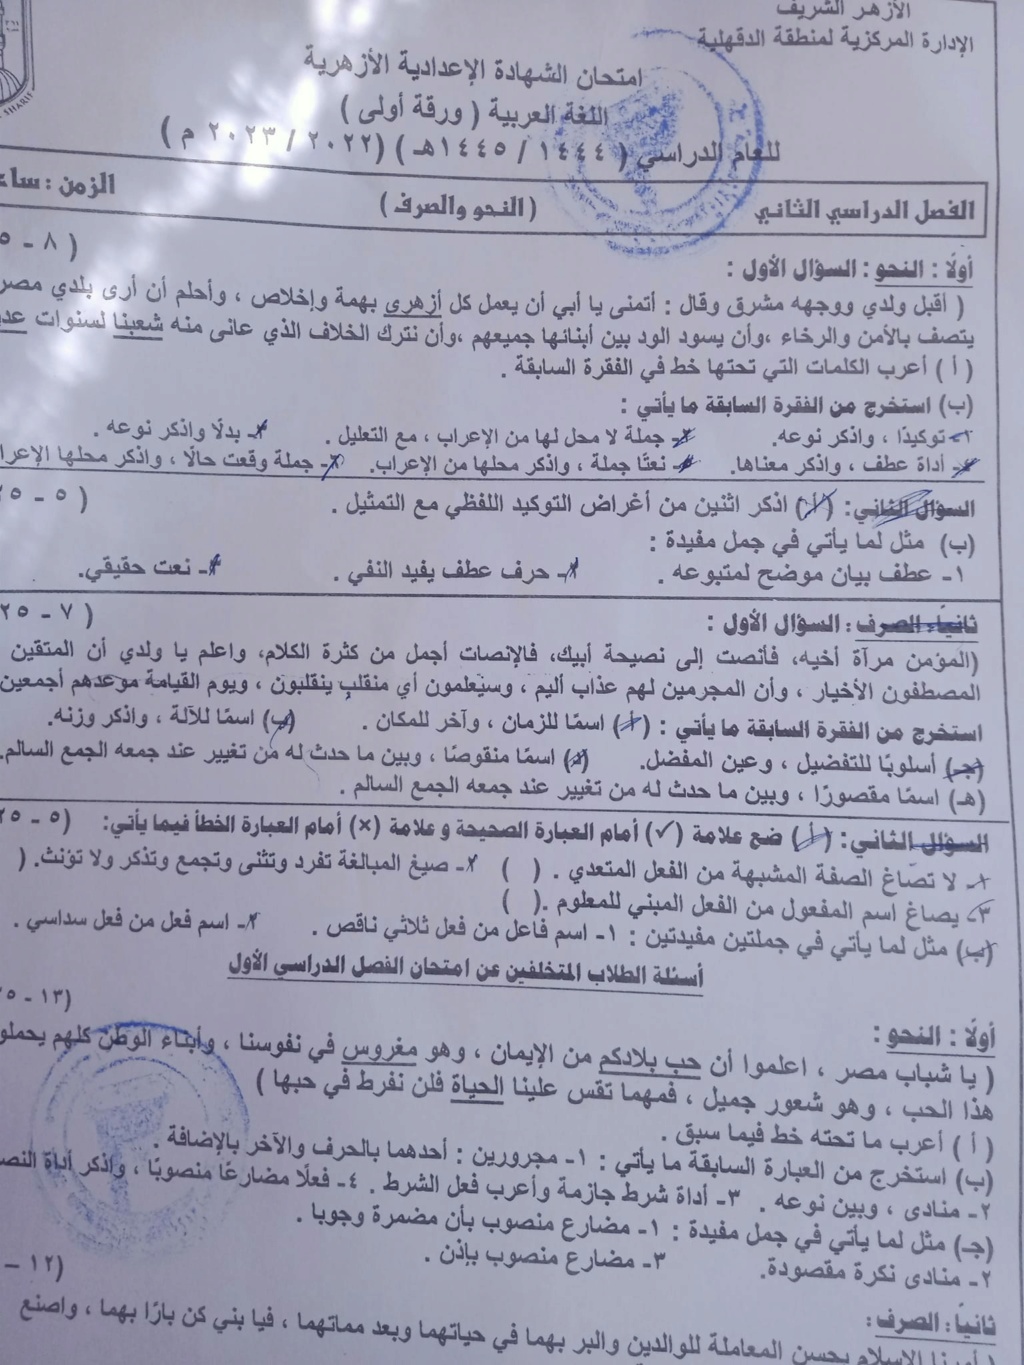 الأزهر الشريف
الإدارة المركزية لمنطقة الدقهلية
امتحان الشهادة الإعدادية الأزهرية
اللغة العربية ( ورقة أولى )
للعام الدراسي ( ١٤٤٤ / ١٤٤٥هـ ) (٢٠٢٢ / ٢٠٢٣ م )
الفصل الدراسي الثاني ( النحو والصرف ) الزمن : ساعـ
أولًا : النحو : السؤال الأول : ( ٨ - ٥
( أقبل ولدي ووجهه مشرق وقال : أتمنى يا أبي أن يعمل كل أزهري بهمة وإخلاص ، وأحلم أن أرى بلدي مصر
يتصف بالأمن والرخاء ،وأن يسود الود بين أبنائها جميعهم ،وأن نترك الخلاف الذي عانى منه شعبنا لسنوات عديـ
( أ ) أعرب الكلمات التي تحتها خط في الفقرة السابقة .
(ب) استخرج من الفقرة السابقة ما يأتي :
١- توكيدًا ، واذكر نوعه. ٢- جملة لا محل لها من الإعراب ، مع التعليل . ٣- بدلًا واذكر نوعه .
٤- أداة عطف ، واذكر معناها. ٥- نعتًا جملة ، واذكر محلها من الإعراب. ٦- جملة وقعت حالًا ، واذكر محلها الإعرا
السؤال الثاني: ( أ ) اذكر اثنين من أغراض التوكيد اللفظي مع التمثيل . ( ٥ - ٢٥
(ب) مثل لما يأتي في جمل مفيدة :
١- عطف بيان موضح لمتبوعه . ٢- حرف عطف يفيد النفي . ٣- نعت حقيقي.
ثانيًا: الصرف : السؤال الأول : ( ٧ - ٢٥
(المؤمن مرآة أخيه، فأنصت إلى نصيحة أبيك، فالإنصات أجمل من كثرة الكلام، واعلم يا ولدي أن المتقين
المصطفون الأخيار ، وأن المجرمين لهم عذاب أليم ، وسيعلمون أي منقلب ينقلبون ، ويوم القيامة موعدهم أجمعين
استخرج من الفقرة السابقة ما يأتي : ( أ ) اسمًا للزمان ، وآخر للمكان . (ب) اسمًا للآلة ، واذكر وزنه.
(جـ) أسلوبًا للتفضيل ، وعين المفضل. (د) اسمًا منقوصًا ، وبين ما حدث له من تغيير عند جمعه الجمع السالم.
(هـ) اسمًا مقصورًا ، وبين ما حدث له من تغيير عند جمعه الجمع السالم .
السؤال الثاني: ( أ ) ضع علامة (✓) أمام العبارة الصحيحة وعلامة (×) أمام العبارة الخطأ فيما يأتي: ( ٥ - ٢٥
١- لا تصاغ الصفة المشبهة من الفعل المتعدي . ( ) ٢- صيغ المبالغة تفرد وتثنى وتجمع وتذكر ولا تؤنث. (
٣- يصاغ اسم المفعول من الفعل المبني للمعلوم .( )
(ب) مثل لما يأتي في جملتين مفيدتين : ١- اسم فاعل من فعل ثلاثي ناقص . ٢- اسم فعل من فعل سداسي .
أسئلة الطلاب المتخلفين عن امتحان الفصل الدراسي الأول
أولًا : النحو : (١٣ - ٢٥
( يا شباب مصر ، اعلموا أن حب بلادكم من الإيمان ، وهو مغروس في نفوسنا ، وأبناء الوطن كلهم يحملو
هذا الحب ، وهو شعور جميل ، فمهما تقس علينا الحياة فلن نفرط في حبها )
( أ ) أعرب ما تحته خط فيما سبق .
(ب) استخرج من العبارة السابقة ما يأتي : ١- مجرورين : أحدهما بالحرف والآخر بالإضافة .
٢- منادى ، وبين نوعه . ٣- أداة شرط جازمة وأعرب فعل الشرط . ٤- فعلًا مضارعًا منصوبًا ، واذكر أداة النصـ
(جـ) مثل لما يأتي في جمل مفيدة : ١- مضارع منصوب بأن مضمرة وجوبا .
٢- منادى نكرة مقصودة. ٣- مضارع منصوب بإذن .
ثانيًا : الصرف : (١٢ -
الإسلام بحسن المعاملة للوالدين والبر بهما في حياتهما وبعد مماتهما ، فيا بني كن بارًا بهما ، واصنع